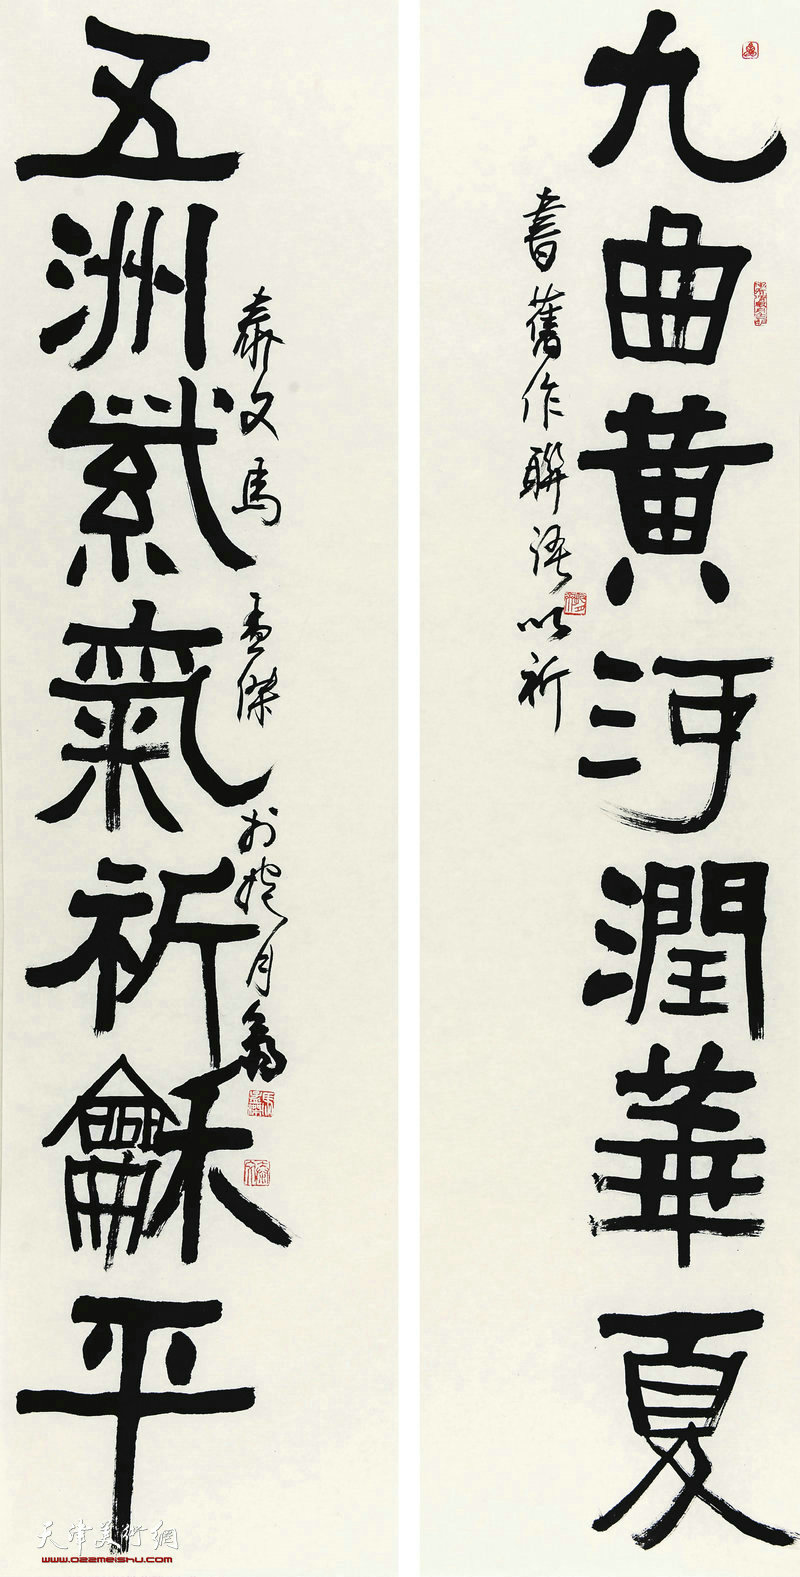 九曲黄河潤華夏
書舊作聯語以祈
五洲紫氣祈龢平
泰文馬孟傑於抱月翁
天津美术網
www.022meishu.com